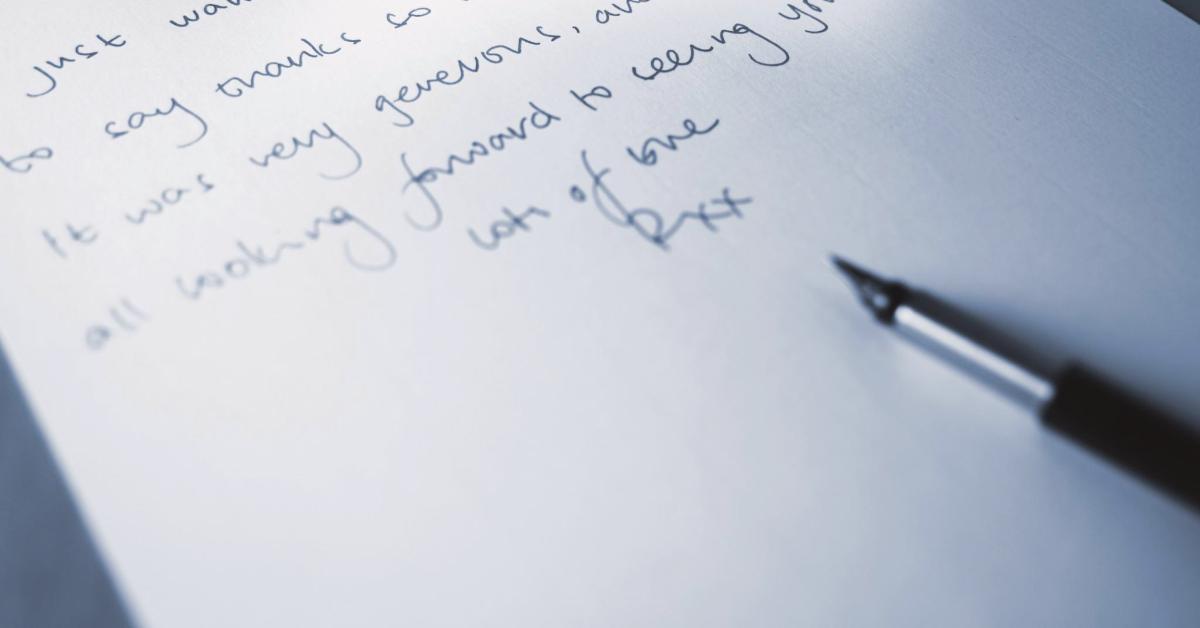 Just wa
to say thanks so
It was very generous, an
all looking forward to seeing yo
Lots of love
Rxx